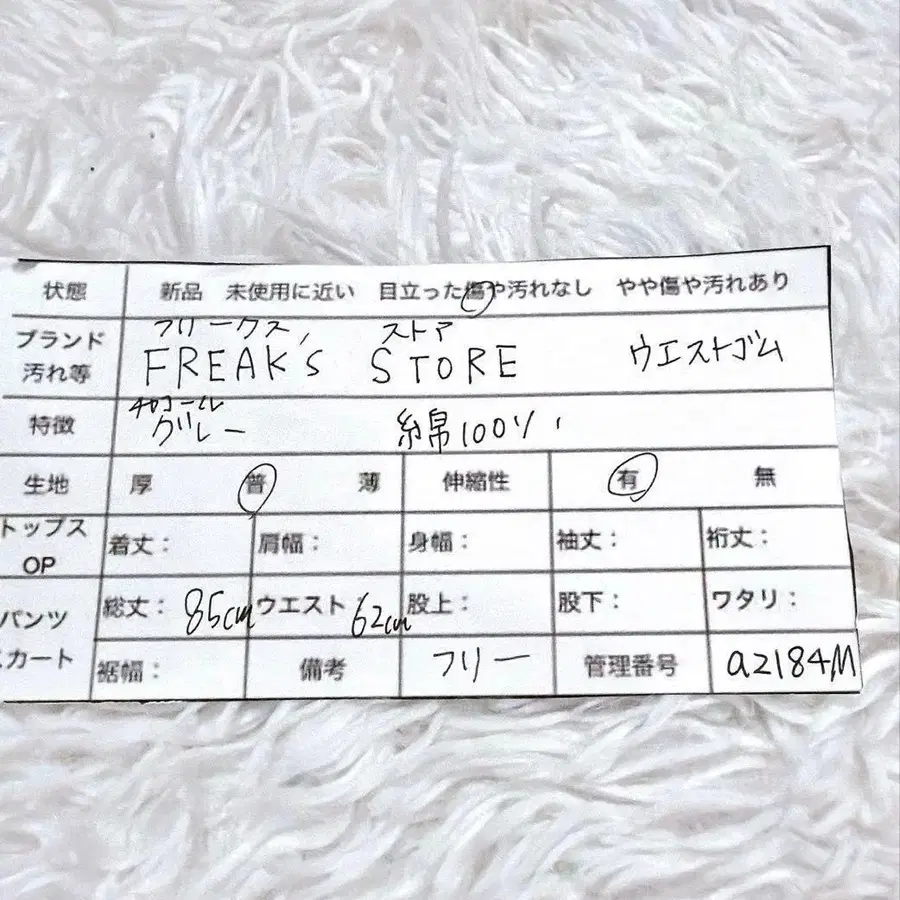 状態 新品 未使用に近い 目立った傷や汚れなし やや傷や汚れあり
フリークス ストア
ブランド 汚れ等 FREAK'S STORE ウエストゴム
チャコール
特徴 グレー 綿100%
生地 厚 普 薄 伸縮性 有 無
トップス OP 着丈: 肩幅: 身幅: 袖丈: 裄丈:
パンツ 総丈: 85cm ウエスト: 62cm 股上: 股下: ワタリ:
カート 裾幅: 備考 フリー 管理番号 a2184M